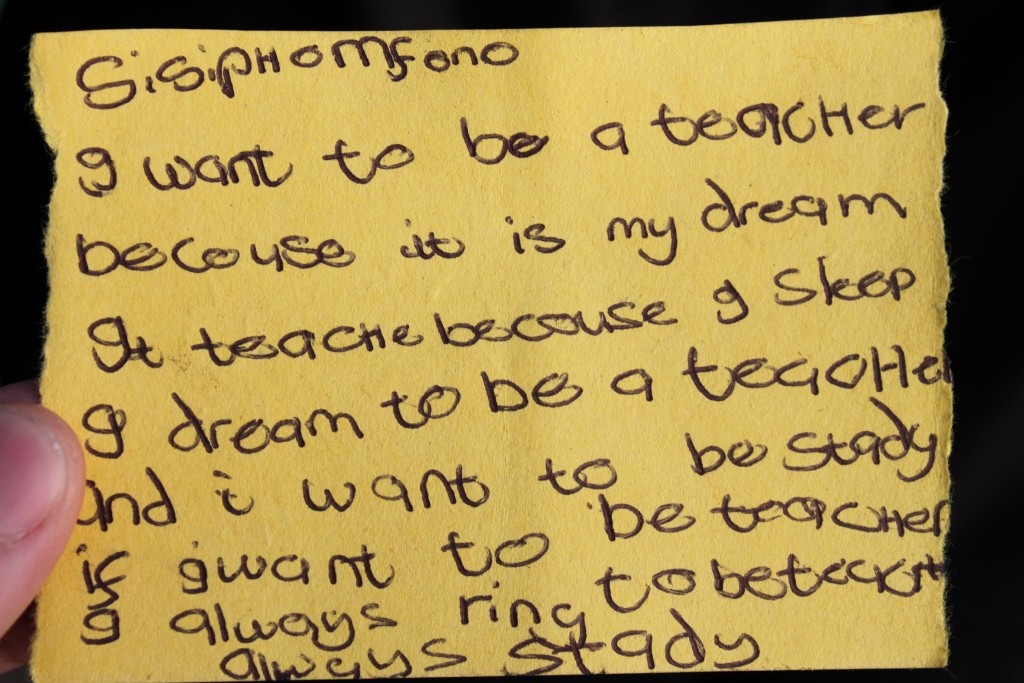 Sisipho Mfono
I want to be a teacher
becouse it is my dream
It teache becouse I sleep
I dream to be a teacher
and i want to be stady
if i want to be teacher
I always ring to be teach
always stady